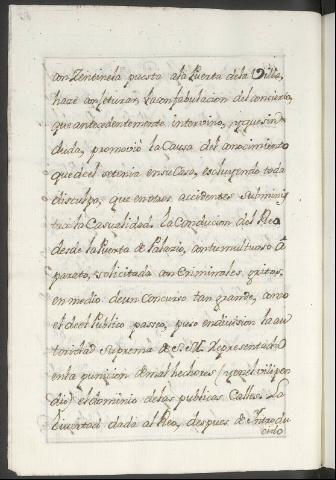 con Zentinela puesta ala Puerta dela Villa,
haze conjeturar, la confabulacion del concierto,
que antecedentemente intervino, y que sin
duda, promoviò la Causa del conocimiento
que de el setenia en su Casa, escluyendo toda
disculpa, que en otros accidentes subminis
tra la Casualidad. La Conducion del Reo
desde la Puerta de Palazio, con tumultuoso à
parato, solicitada con Criminales gritos,
en medio de un Concurso tan grande, como
el de el Publico paseo, puso en division la au
toridad Suprema de S. M. Representada
en la punicion de mal hechores (y en el vilipen
dio) el dominio delas publicas Calles. La
livertad dada al Reo, despues de Introdu
cido